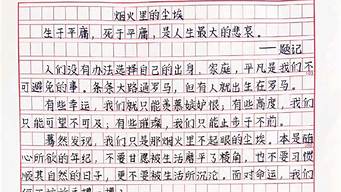 烟火里的尘埃
生于平庸，死于平庸，是人生最大的悲哀。
——题记
人们没有办法选择自己的出身、家庭，平凡是我们不
可避免的事，条条大路通罗马，但有人就出生在罗马。
有些幸运，我们就只能羡慕嫉妒恨；有些高度，我们
只能可望不可及；有些璀璨，我们只能止步于不前。
蓦然发现，我们只是那烟火里不起眼的尘埃。本是随
心所欲的年纪，不要甘愿被生活磨平了棱角，也不要习惯
顺其自然的日子，更不要被生活所沉沦，面对命运，我们